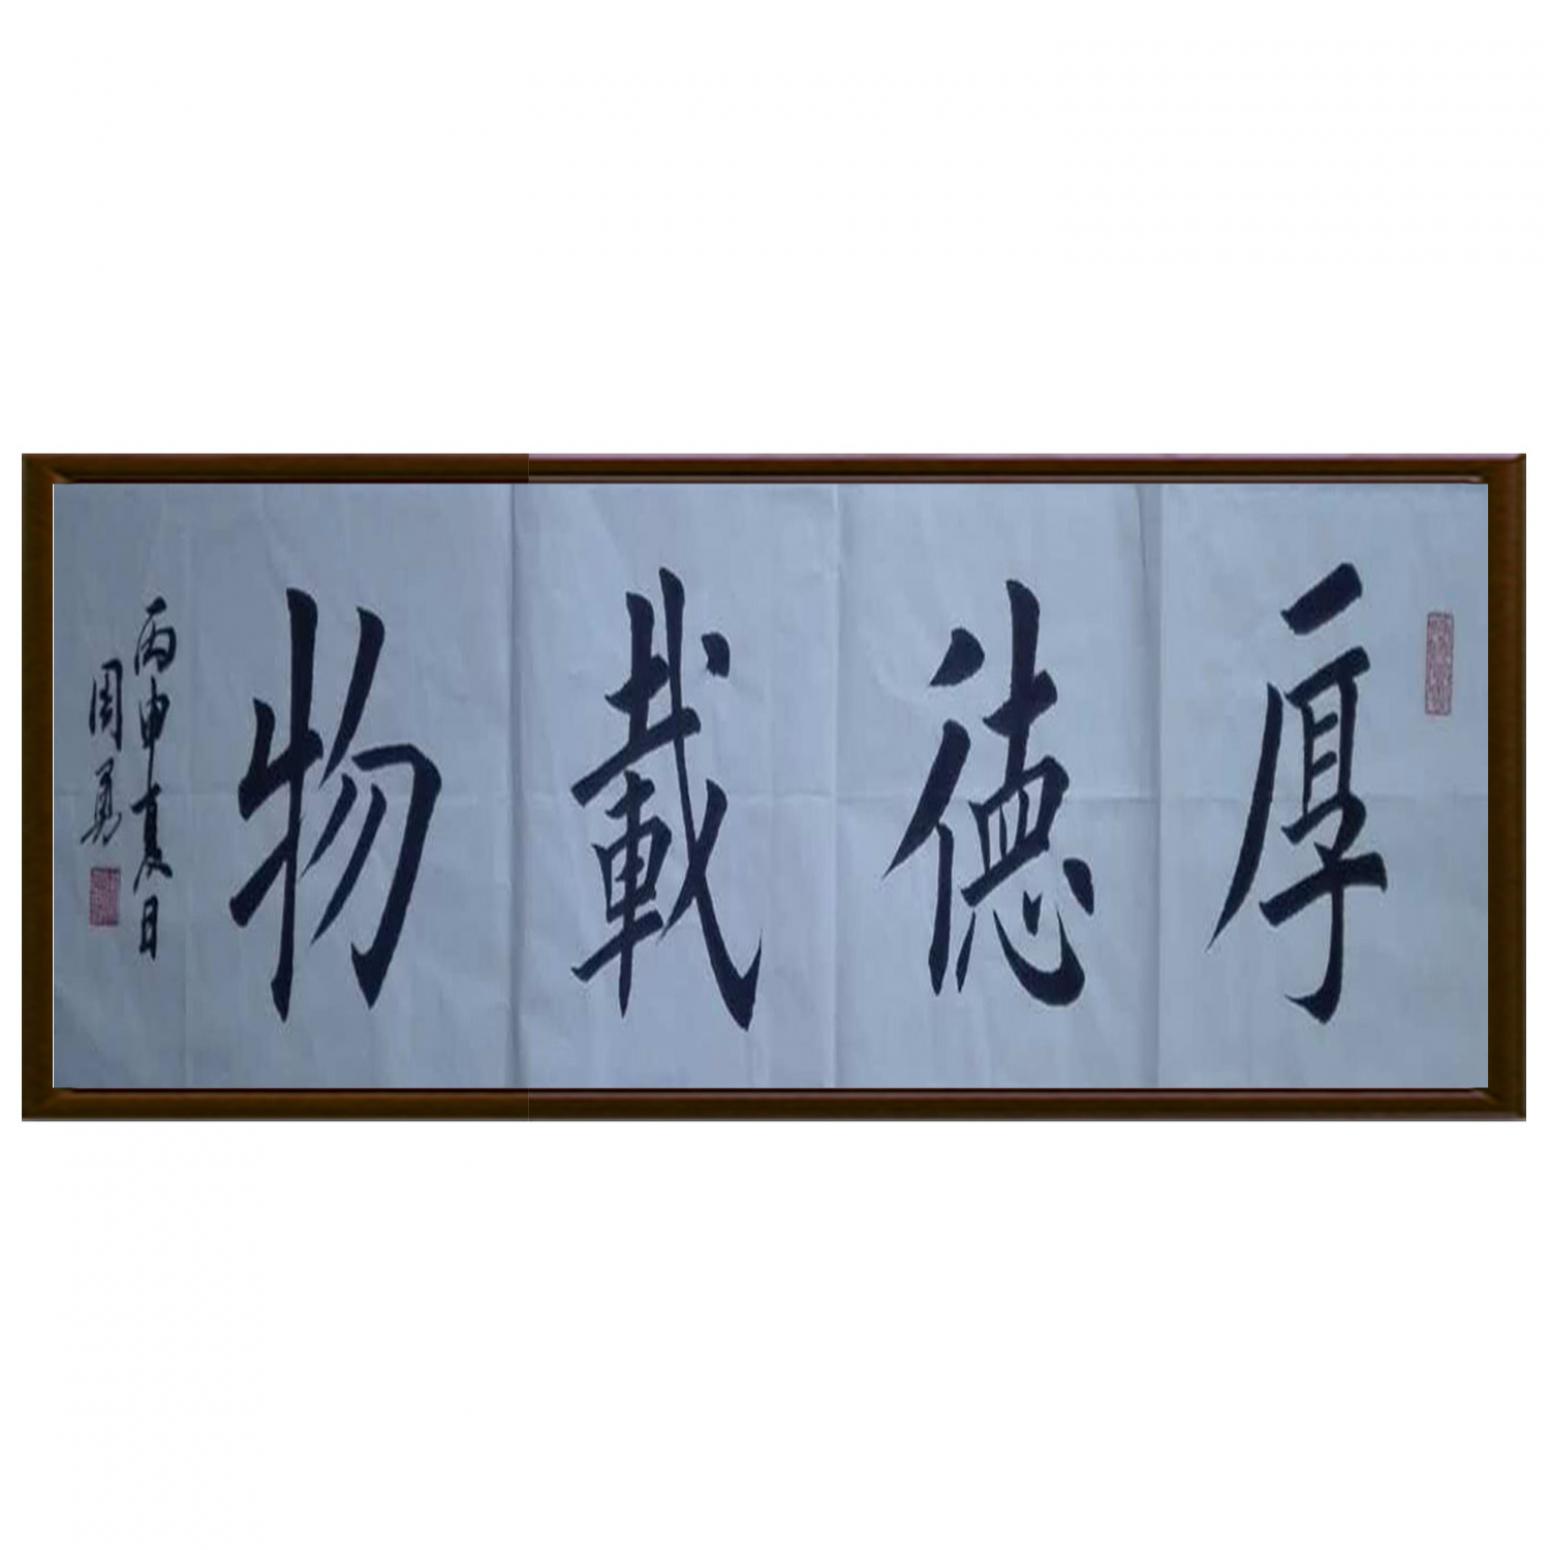 厚德載物
丙申夏日
周勇